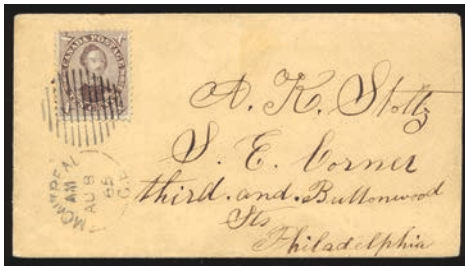 CANADA POSTAGE
TEN CENTS
MONTREAL
AM
AU 8
65
C.E.
A. K. Stoltz
S. E. Corner
third. and. Buttonwood
Sts
Philadelphia